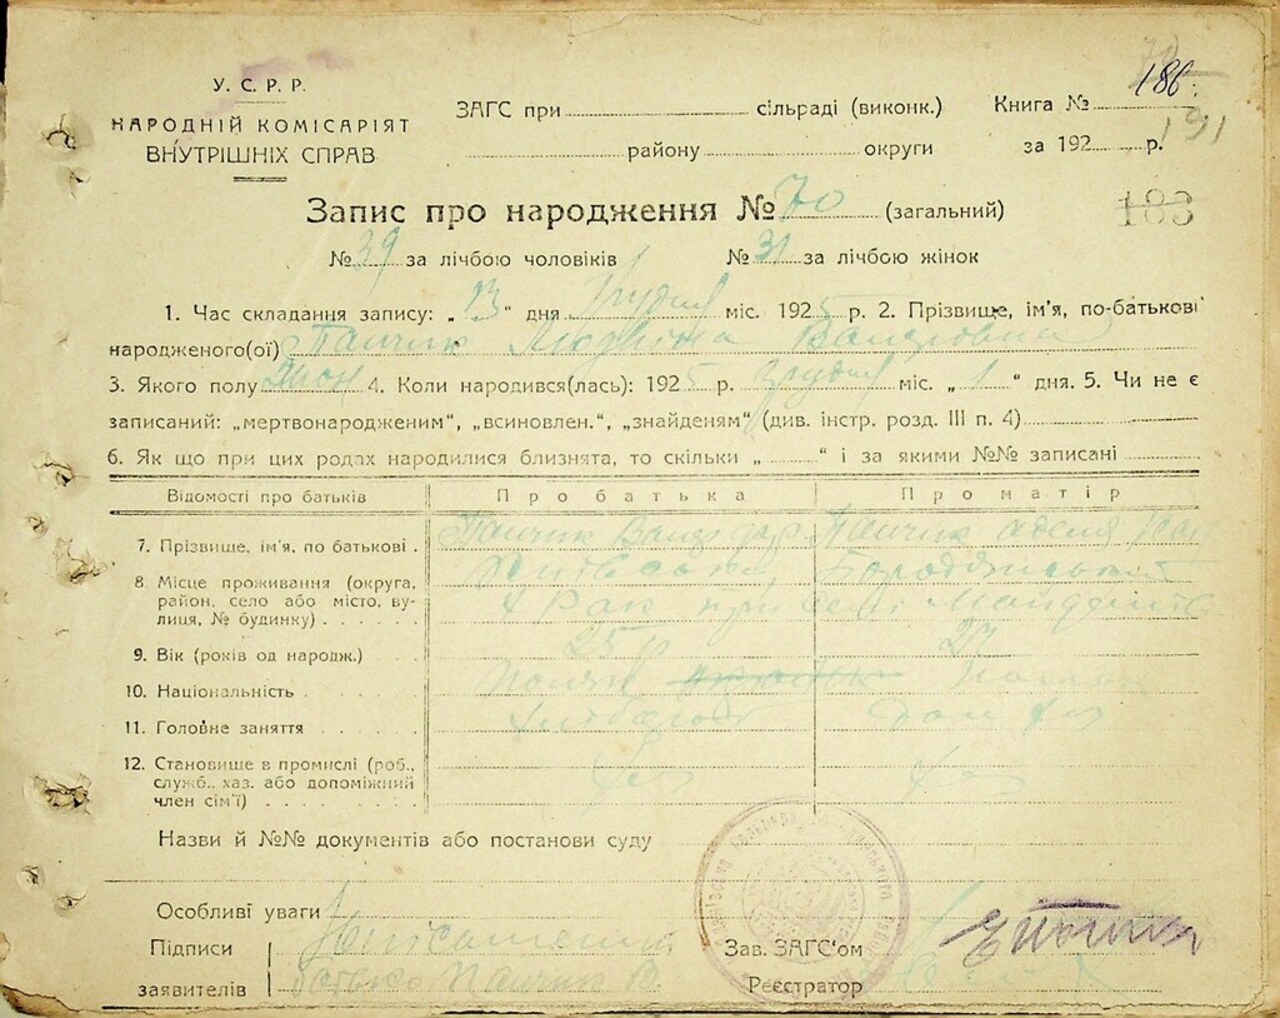 186.
У. С. Р. Р.
НАРОДНІЙ КОМІСАРІЯТ
ВНУТРІШНІХ СПРАВ
ЗАГС при сільраді (виконк.)
району округи
Книга №
за 192 р.
191
183
Запис про народження № 70 (загальний)
№ 39 за лічбою чоловіків № 31 за лічбою жінок
1. Час складання запису: „13“ дня Грудня міс. 1925 р. 2. Прізвище, ім'я, по-батькові
народженого(ої) Панчик Людвіна Вацловна
3. Якого полу Жон 4. Коли народився(лась): 1925 р. Грудня міс. „1“ дня. 5. Чи не є
записаний: „мертвонародженим“, „всиновлен.“, „знайденям“ (див. інстр. розд. III п. 4)
6. Як що при цих родах народилися близнята, то скільки „ “ і за якими №№ записані
Відомості про батьків Про батька Про матір
7. Прізвище, ім'я, по батькові . Панчик Панчик Аделя
8 Місце проживання (округа,
район, село або місто, ву-
лиця, № будинку) . . . . . .
9. Вік (років од народж.) 25 р 27
10. Національність . Поляк
11. Головне заняття Хлібороб
12. Становище в промислі (роб.,
служб., хаз. або допоміжний
член сім'ї) . . . . . . . . .
Назви й №№ документів або постанови суду
Особливі уваги
Підписи
заявителів
батько Панчик В.
Зав. ЗАГС'ом
Реєстратор